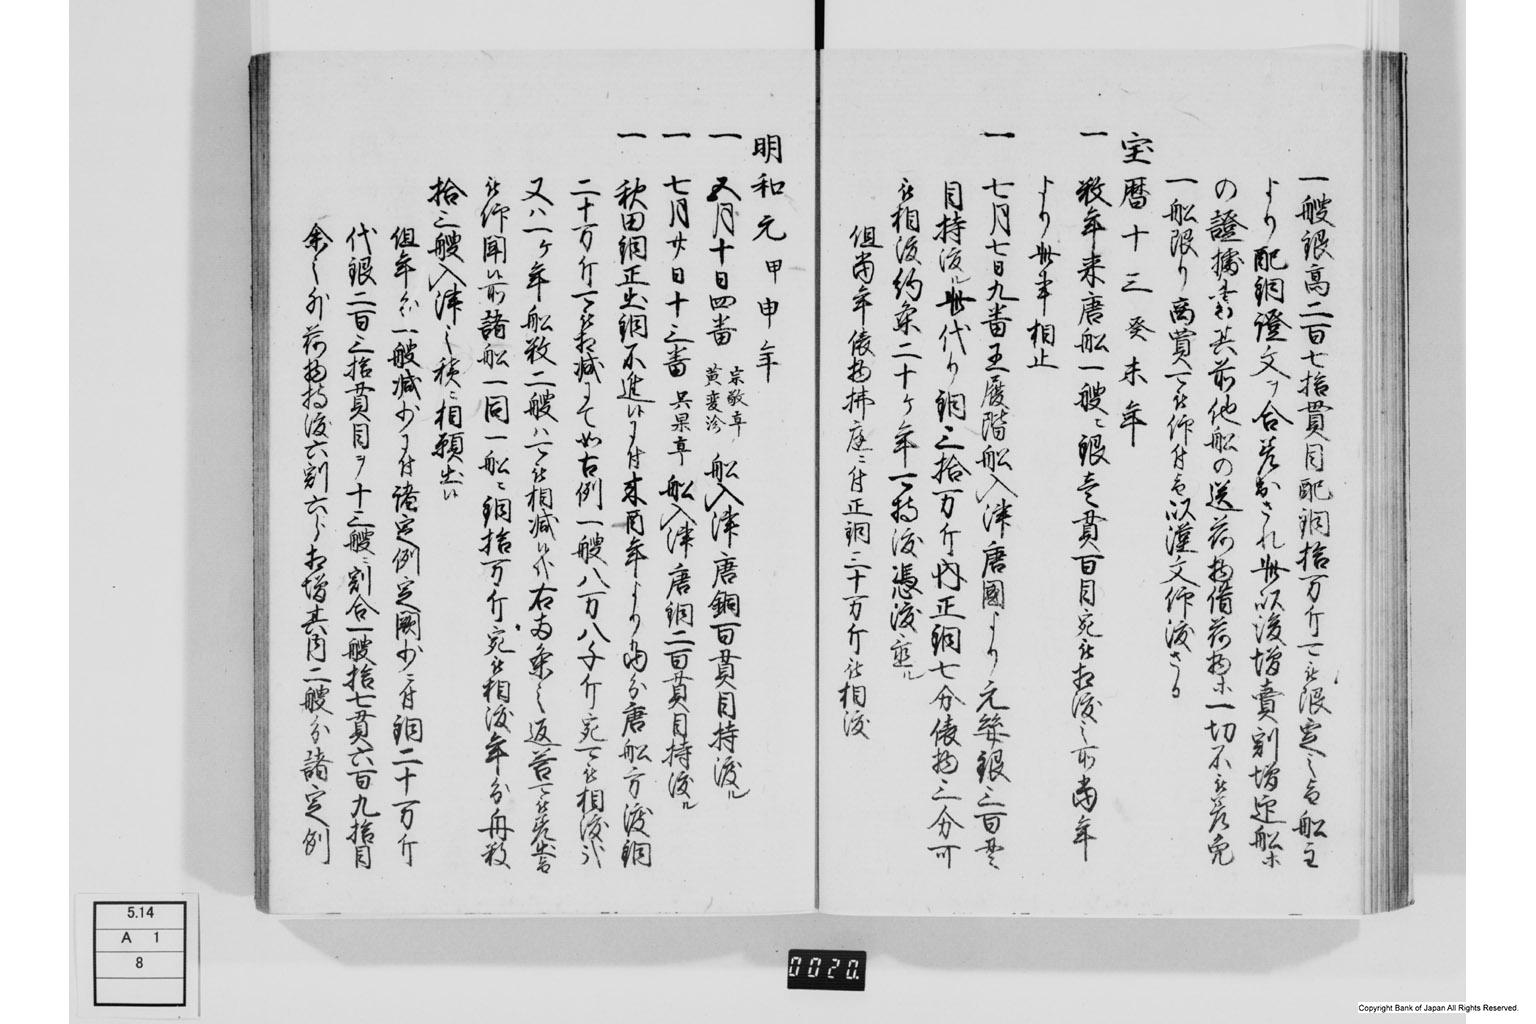 一艘銀高二百七拾貫目配銅拾万斤可被限定之旨船主
より配銅證文ヲ合差出され此以後増賣割増迎船等
の證據書其前他船の送荷物借荷物等一切不被差免
一船限り商賣可被仰付旨以漢文仰渡さる
宝暦十三癸未年
一 数年来唐船一艘ニ銀壱貫百目宛被相渡之所当年
より此事相止
一 七月七日九番王履階船入津唐國より元絲銀三百貫
目持渡ル此代り銅三拾万斤内正銅七分俵物三分可
被相渡約条二十ケ年可持渡憑渡
但当年俵物拂底ニ付正銅三十万斤被相渡
明和元甲申年
一 五月十日四番 宗敬亭 黄奕珍 船入津唐銅百貫目持渡ル
一 七月廿日十三番 呉杲亭 船入津唐銅二百貫目持渡ル
一 秋田銅正出銅不進ニ付来酉年より当分唐船方渡銅
二十万斤可被相減ニて如古例一艘八万八千斤宛可被相渡
又ハ一ケ年船数二艘ハ可被相減候哉右両条之返答可被差出旨
被仰聞候前諸船一同一船ニ銅拾万斤宛被相渡年分舟数
拾三艘入津之積ニ相願出候
但年分一艘減少ニ付諸定例定闕少ニ付銅二十万斤
代銀二百三拾貫目ヲ十三艘ニ割合一艘拾七貫六百九拾目
余之外荷物持渡六割六分相増其内二艘分諸定例
5.14
A 1
8
0020.
Copyright Bank of Japan All Rights Reserved.